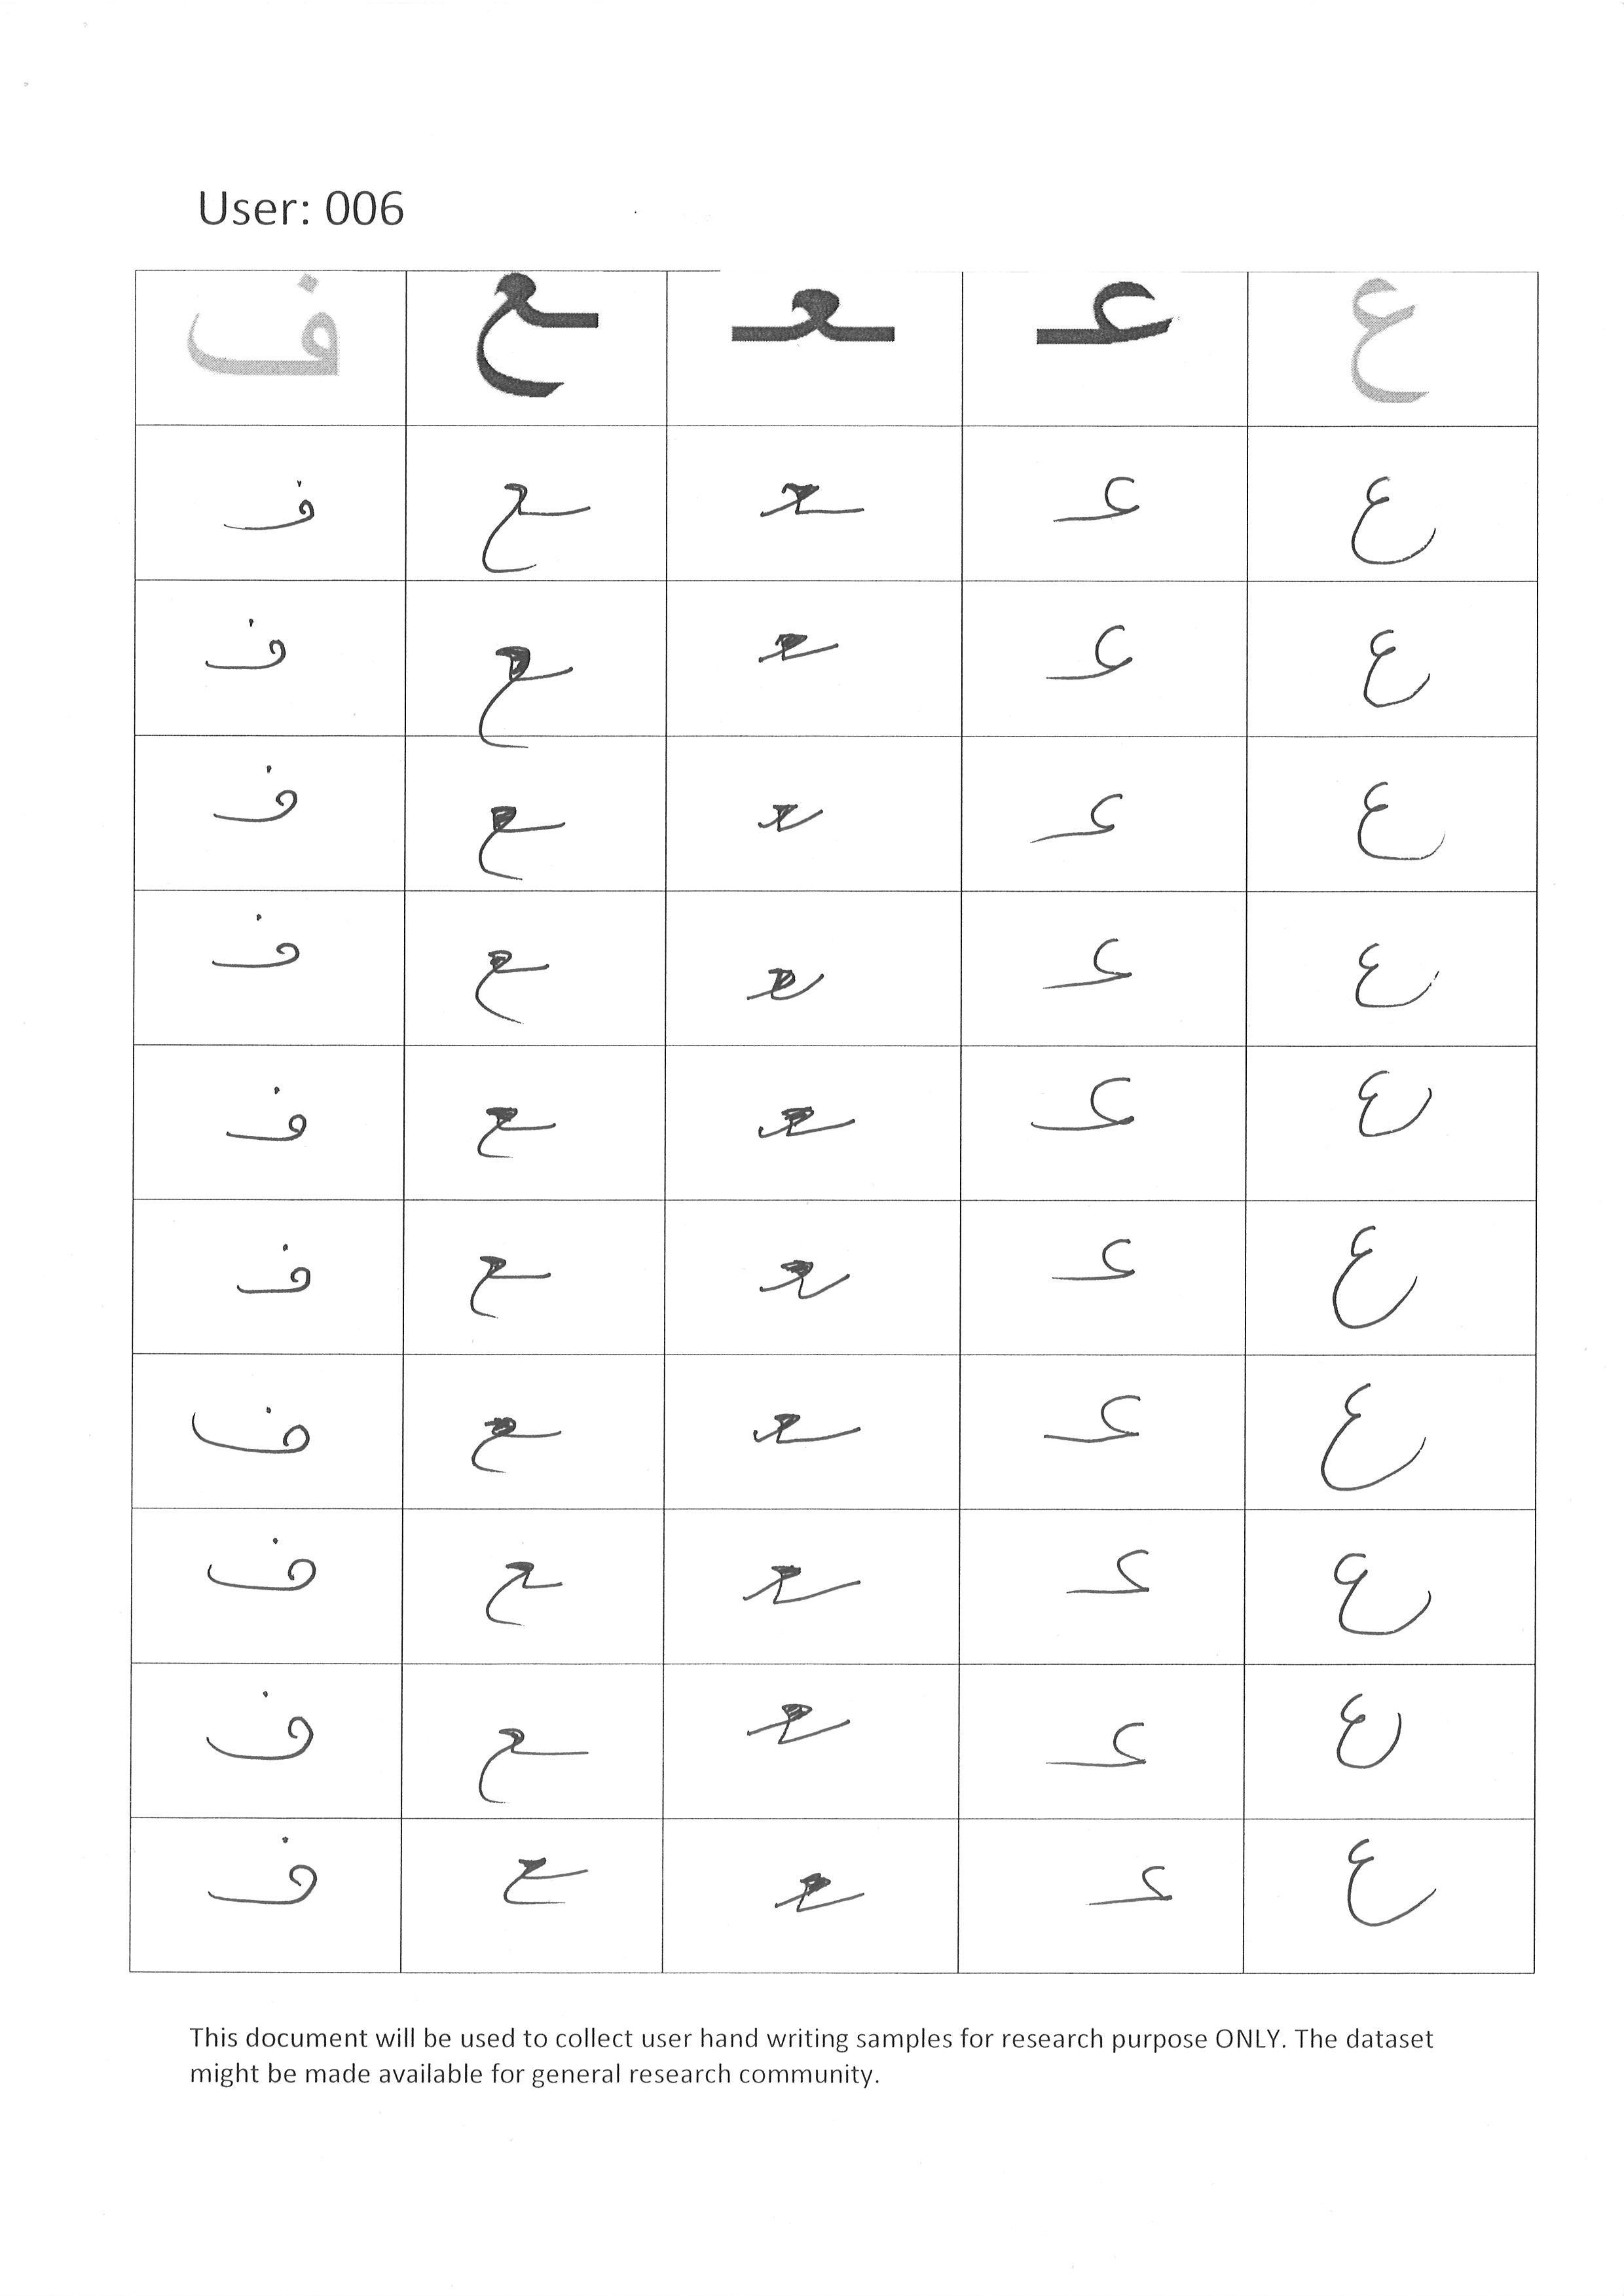 User: 006
ع عـ ـعـ ـع ف
ع عـ ـعـ ـع ف
ع عـ ـعـ ـع ف
ع عـ ـعـ ـع ف
ع عـ ـعـ ـع ف
ع عـ ـعـ ـع ف
ع عـ ـعـ ـع ف
ع عـ ـعـ ـع ف
ع عـ ـعـ ـع ف
ع عـ ـعـ ـع ف
ع عـ ـعـ ـع ف
This document will be used to collect user hand writing samples for research purpose ONLY. The dataset
might be made available for general research community.